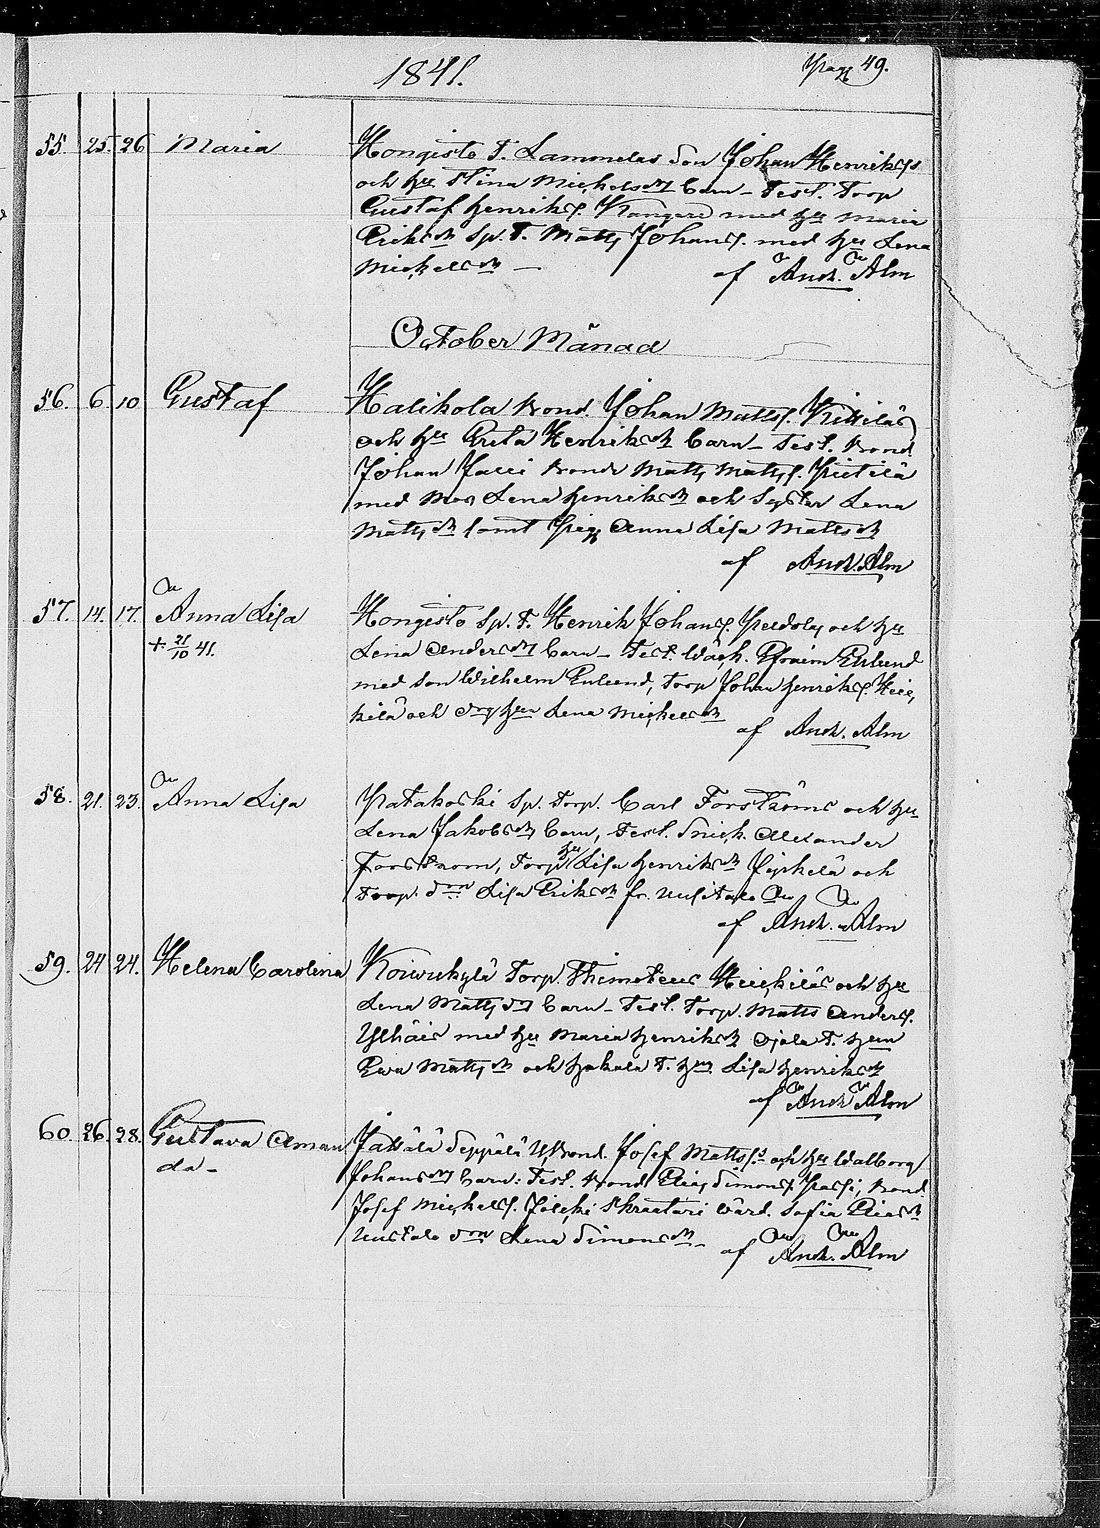 1841. Pag 49.
55. 25. 26 Maria Hongisto T. Lammelas Son Johan Henrikss
och hu Stina Michelsdr barn – Test. Torp
Gustaf Henriks. Kangari med hu Maria
Eriksdr Sp. T. Matts Johans. med hu Lena
Michelsdr — af And. Alm
October Månad
56. 6. 10 Gustaf Halikola Bond. Johan Matts. Kittilä
och hu Greta Henriksdr barn – Test. Bond
Johan Jacci Bonde Matts Matts. Pietilä
med Mor Lena Henriksdr och Syster Lena
Mattsdr samt Pig Anna Lisa Mattsdr
af And. Alm
57. 14. 17. Anna Lisa Hongisto Sp. T. Henrik Johans. och hu
+ 21/10 41. Lena Andersdr barn – Test. Efraim Enlund
med Son Wilhelm Enlund, Torp Johan Henriks. Hei,
kilä och Lena Michelsdr
af And. Alm
58. 21. 23. Anna Lisa Patakoski Sp. Torp. Carl Forströms och hu
Lena Jakobsdr barn, Test. Snick. Alexander
Forstrom, Torp hu Lisa Henriksdr och
Torp. dnn Lisa Eriksdr fr. Uusitalo
af And. Alm
59. 24 24. Helena Carolina Koivukylä Torp. Thimoteus Heickiläs och hu
Lena Mattsdr barn – Test. Torp. Matts Anders.
Ylhäis med hu Maria Henriksdr Ojala T. hun
Ewa Mattsdr och Hakala T. hun Lisa Henriksdr
af And. Alm
60. 26. 28. Gustava Aman Jättälä Seppälä Bond. Josef Matts. och hu Walborg
da – Johansdr barn. Test. Bond Elias Simons. Bond
Josef Michels. Skraatari wärd. Sofia Eliasdr
Uusitalo dnn Lena Simonsdr – af And. Alm